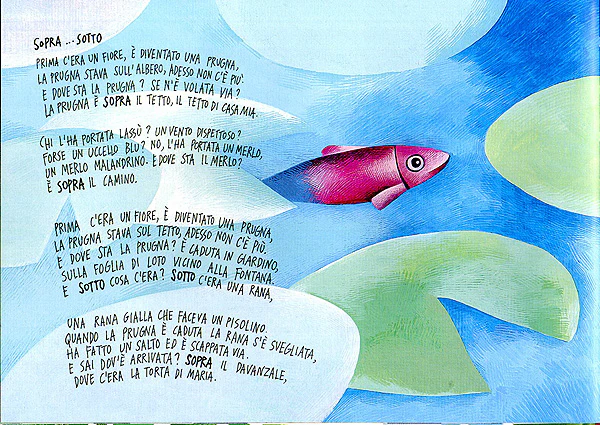 SOPRA ... SOTTO
PRIMA C'ERA UN FIORE, È DIVENTATO UNA PRUGNA,
LA PRUGNA STAVA SULL'ALBERO, ADESSO NON C'È PIÙ.
E DOVE STA LA PRUGNA? SE N'È VOLATA VIA?
LA PRUGNA È SOPRA IL TETTO, IL TETTO DI CASA MIA.
CHI L'HA PORTATA LASSÙ? UN VENTO DISPETTOSO?
FORSE UN UCCELLO BLU? NO, L'HA PORTATA UN MERLO,
UN MERLO MALANDRINO. E DOVE STA IL MERLO?
È SOPRA IL CAMINO.
PRIMA C'ERA UN FIORE, È DIVENTATO UNA PRUGNA,
LA PRUGNA STAVA SUL TETTO, ADESSO NON C'È PIÙ.
E DOVE STA LA PRUGNA? È CADUTA IN GIARDINO,
SULLA FOGLIA DI LOTO VICINO ALLA FONTANA.
E SOTTO COSA C'ERA? SOTTO C'ERA UNA RANA,
UNA RANA GIALLA CHE FACEVA UN PISOLINO.
QUANDO LA PRUGNA È CADUTA LA RANA S'È SVEGLIATA,
HA FATTO UN SALTO ED È SCAPPATA VIA.
E SAI DOV'È ARRIVATA? SOPRA IL DAVANZALE,
DOVE C'ERA LA TORTA DI MARIA.